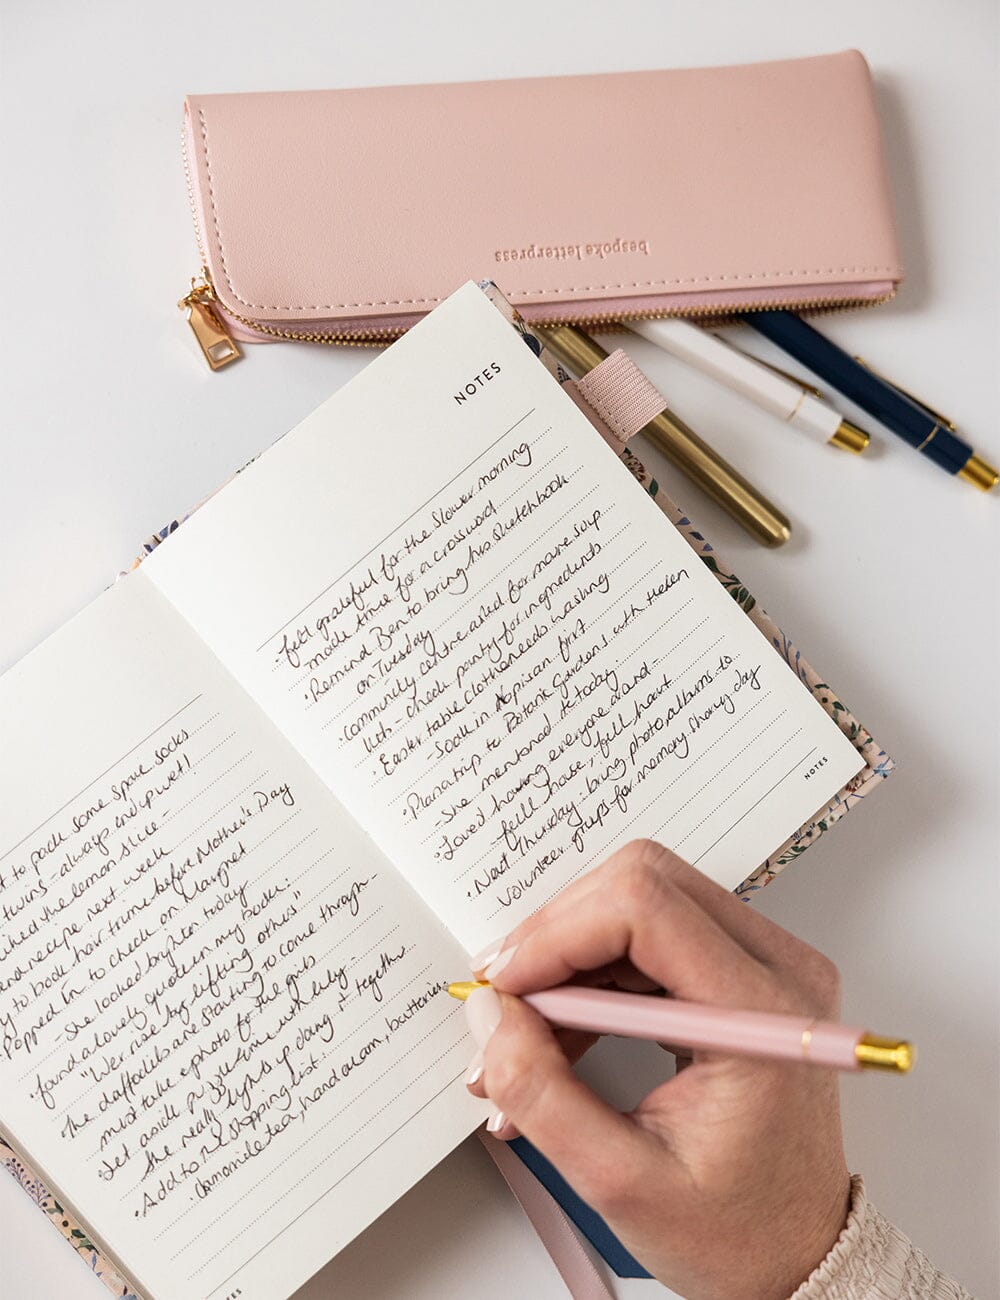 bespoke letterpress
NOTES
· felt grateful for the slower morning
made time for a crossword
· Remind Ben to bring his sketchbook
on Tuesday
· Community centre asked for more soup
kits - check pantry for ingredients
· Easter table clothe needs washing
- Soak in Napisan first
· Plan a trip to Botanic Gardens with Helen
- She mentioned it today.
· Loved having everyone around -
- full house, full heart
· Next Thursday - bring photo albums to
volunteer groups for memory sharing day
NOTES
to pack some spare socks
twins - always end up wet!
the lemon slice -
recipe next week
to book hair trim before Mother's Day
Popped in to check on Margaret
- She looked brighter today
found a lovely quote in my book:
"We rise by lifting others"
The daffodils are starting to come through -
must take a photo for the girls
Set aside puzzle time with Lily -
She really lights up doing it together
· Add to shopping list:
· Chamomile tea, hand cream, batteries